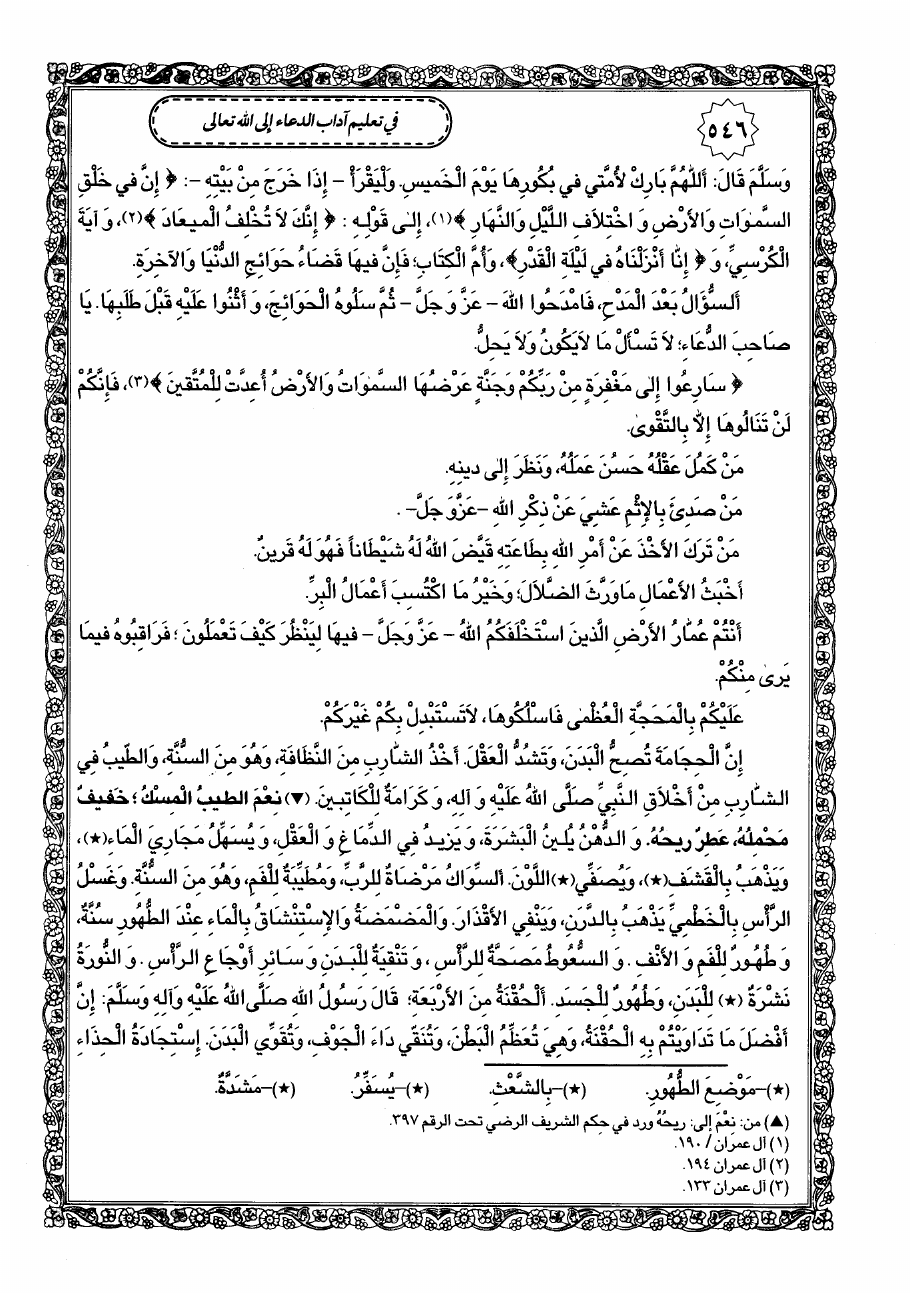 ٥٤٦
في تعليم آداب الدعاء إلى الله تعالى
وَسَلَّمَ قَالَ: أَللّٰهُمَّ بَارِكْ لأُمَّتي في بُكُورِهَا يَوْمَ الْخَميسِ. وَلْيَقْرَأْ – إِذَا خَرَجَ مِنْ بَيْتِهِ –: ﴿ إِنَّ في خَلْقِ
السَّمٰوَاتِ وَالأَرْضِ وَ اخْتِلاَفِ اللَّيْلِ وَالنَّهَارِ ﴾(١)، إِلىٰ قَوْلِهِ : ﴿ إِنَّكَ لاَ تُخْلِفُ الْميعَادَ ﴾(٢)، وَ آيَةَ
الْكُرْسِيِّ، وَ ﴿ إِنَّا أَنْزَلْنَاهُ في لَيْلَةِ الْقَدْرِ﴾، وَأُمَّ الْكِتَابِ؛ فَإِنَّ فيهَا قَضَاءُ حَوَائِجِ الدُّنْيَا وَالآخِرَةِ.
أَلسُّؤَالُ بَعْدَ الْمَدْحِ، فَامْدَحُوا اللهَ – عَزَّ وَ جَلَّ – ثُمَّ سَلُوهُ الْحَوَائِجَ، وَ أَثْنُوا عَلَيْهِ قَبْلَ طَلَبِهَا. يَا
صَاحِبَ الدُّعَاءِ؛ لاَ تَسْأَلْ مَا لاَيَكُونُ وَلاَ يَحِلُّ.
﴿ سَارِعُوا إِلىٰ مَغْفِرَةٍ مِنْ رَبِّكُمْ وَجَنَّةٍ عَرْضُهَا السَّمٰوَاتُ وَالأَرْضُ أُعِدَّتْ لِلْمُتَّقينَ ﴾(٣)، فَإِنَّكُمْ
لَنْ تَنَالُوهَا إِلاَّ بِالتَّقْوىٰ.
مَنْ كَمُلَ عَقْلُهُ حَسُنَ عَمَلُهُ، وَنَظَرَ إِلىٰ دينِهِ.
مَنْ صَدِئَ بِالإِثْمِ عَشِيَ عَنْ ذِكْرِ اللهِ –عَزَّوَ جَلَّ– .
مَنْ تَرَكَ الأَخْذَ عَنْ أَمْرِ اللهِ بِطَاعَتِهِ قَيَّضَ اللهُ لَهُ شَيْطَاناً فَهُوَ لَهُ قَرينٌ.
أَخْبَثُ الأَعْمَالِ مَاوَرَّثَ الضَّلاَلَ؛ وَخَيْرُ مَا اكْتُسِبَ أَعْمَالُ الْبِرِّ.
أَنْتُمْ عُمَّارُ الأَرْضِ الَّذينَ اسْتَخْلَفَكُمُ اللهُ – عَزَّ وَجَلَّ – فيهَا لِيَنْظُرَ كَيْفَ تَعْمَلُونَ ؛ فَرَاقِبُوهُ فيمَا
يَرىٰ مِنْكُمْ.
عَلَيْكُمْ بِالْمَحَجَّةِ الْعُظْمىٰ فَاسْلُكُوهَا، لاَتَسْتَبْدِلْ بِكُمْ غَيْرَكُمْ.
إِنَّ الْحِجَامَةَ تُصِحُّ الْبَدَنَ، وَتَشُدُّ الْعَقْلَ. أَخْذُ الشَّارِبِ مِنَ النَّظَافَةِ، وَهُوَ مِنَ السُّنَّةِ، وَالطّيبُ فِي
الشَّارِبِ مِنْ أَخْلاَقِ النَّبِيِّ صَلَّى اللهُ عَلَيْهِ وَ آلِهِ، وَ كَرَامَةٌ لِلْكَاتِبينَ. (▼) نِعْمَ الطيبُ الْمِسْكُ ؛ خَفيفٌ
مَحْمِلُهُ، عَطِرٌ ريحُهُ. وَ الدُّهْنُ يُلينُ الْبَشَرَةَ، وَ يَزيدُ فِي الدِّمَاغِ وَ الْعَقْلِ، وَ يُسَهِّلُ مَجَارِيَ الْمَاءِ(★)،
وَيَذْهَبُ بِالْقَشَفِ(★)، وَيُصَفِّي(★)اللَّوْنَ. أَلسِّوَاكُ مَرْضَاةٌ لِلرَّبِّ، وَمَطْيَبَةٌ لِلْفَمِ، وَهُوَ مِنَ السُّنَّةِ. وَغَسْلُ
الرَّأْسِ بِالْخَطْمِيِّ يَذْهَبُ بِالدَّرَنِ، وَيَنْفِي الأَقْذَارَ. وَالْمَضْمَضَةُ وَالإِسْتِنْشَاقُ بِالْمَاءِ عِنْدَ الطَّهُورِ سُنَّةٌ،
وَ طَهُورٌ لِلْفَمِ وَ الأَنْفِ . وَ السَّعُوطُ مَصَحَّةٌ لِلرَّأْسِ ، وَ تَنْقِيَةٌ لِلْبَدَنِ وَ سَائِرِ أَوْجَاعِ الرَّأْسِ . وَ النُّورَةُ
نَشْرَةٌ (★) لِلْبَدَنِ، وَطَهُورٌ لِلْجَسَدِ. أَلْحُقْنَةُ مِنَ الأَرْبَعَةِ؛ قَالَ رَسُولُ اللهِ صَلَّى اللهُ عَلَيْهِ وَآلِهِ وَسَلَّمَ: إِنَّ
أَفْضَلَ مَا تَدَاوَيْتُمْ بِهِ الْحُقْنَةُ، وَهِيَ تُعَظِّمُ الْبَطْنَ، وَتُنَقّي دَاءَ الْجَوْفِ، وَتُقَوِّي الْبَدَنَ. إِسْتِجَادَةُ الْحِذَاءِ
(★)–مَوْضِعَ الطَّهُورِ. (★)–بِالشَّعْثِ. (★)–يُسَفِّرُ. (★)–مَشَدَّةٌ.
(▲) من: نِعْمَ إلى: ريحُهُ ورد في حكم الشريف الرضي تحت الرقم ٣٩٧.
(١) آل عمران / ١٩٠.
(٢) آل عمران ١٩٤.
(٣) آل عمران ١٣٣.